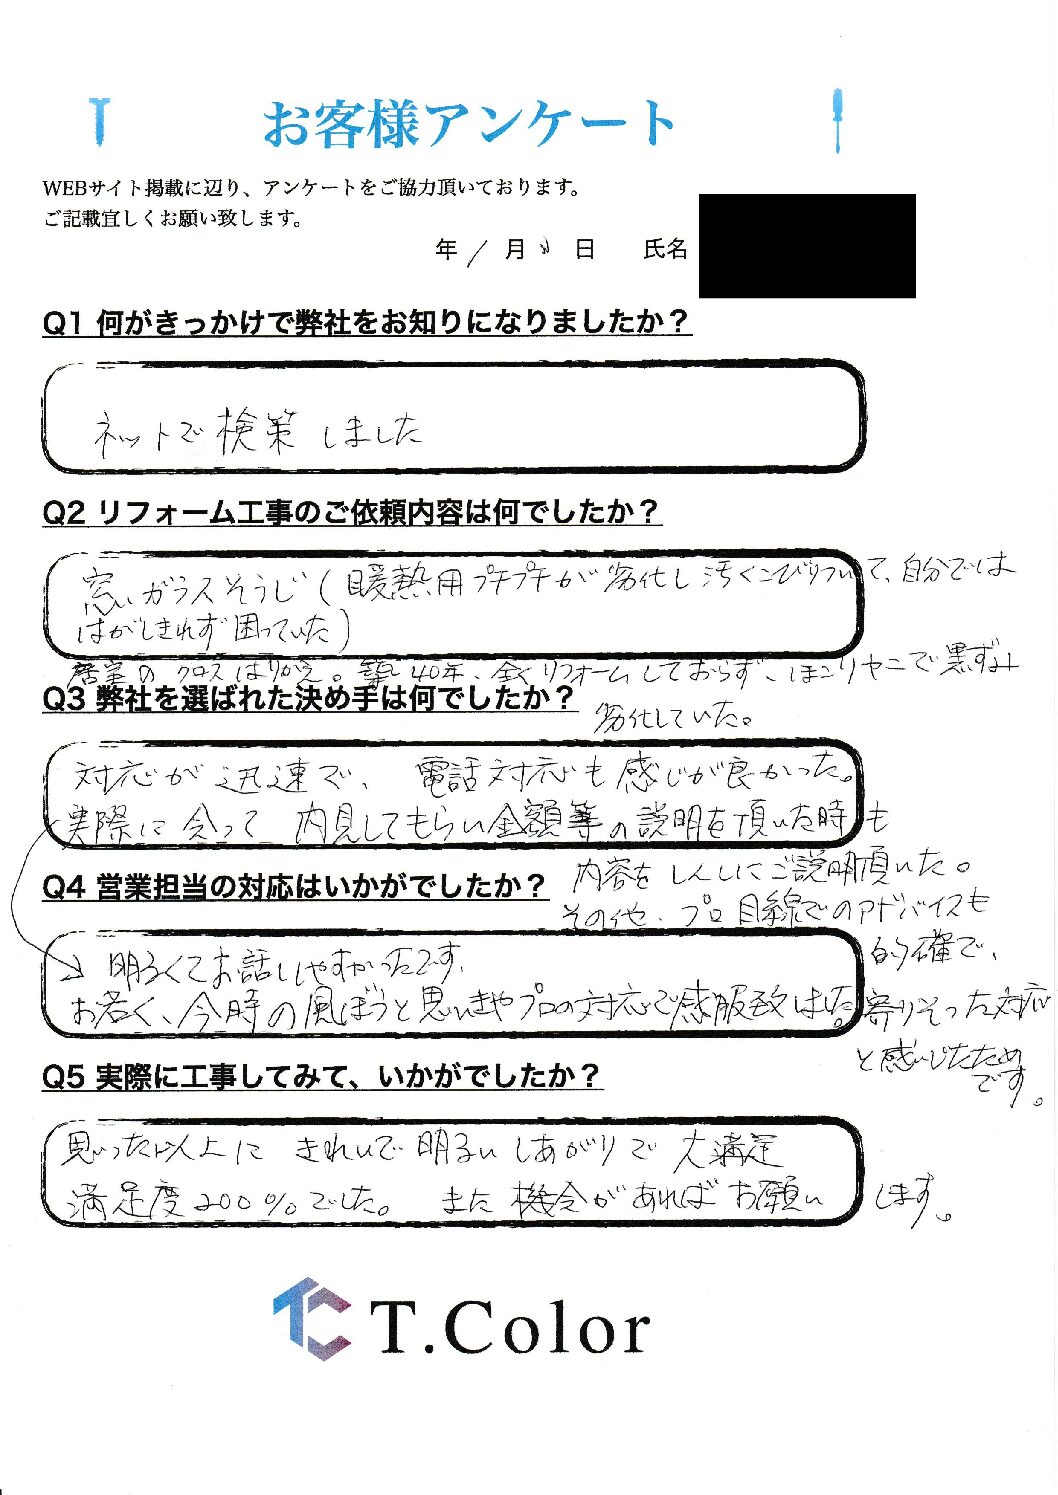 お客様アンケート
WEBサイト掲載に辺り、アンケートをご協力頂いております。
ご記載宜しくお願い致します。
年 1 月 日 氏名
Q1 何がきっかけで弊社をお知りになりましたか？
ネットで検策しました
Q2 リフォーム工事のご依頼内容は何でしたか？
窓ガラスそうじ(暖熱用プチプチが劣化し汚くこびりついて、自分では
はがしきれず困っていた)
居室のクロスはりかえ。築40年、全くリフォームしておらず、ほこりヤニで黒ずみ
劣化していた。
Q3 弊社を選ばれた決め手は何でしたか？
対応が迅速で、電話対応も感じが良かった。
実際に会って内見してもらい金額等の説明を頂いた時も
内容をしんしにご説明頂いた。
その他、プロ目線でのアドバイスも
的確で、
寄りそった対応
と感じたため
です。
Q4 営業担当の対応はいかがでしたか？
明るくてお話ししやすかったです。
お若く、今時の風ぼうと思いきやプロの対応で感服致しました。
Q5 実際に工事してみて、いかがでしたか？
思った以上にきれいで明るいしあがりで大満足
満足度200%でした。また機会があればお願いします。
T.Color